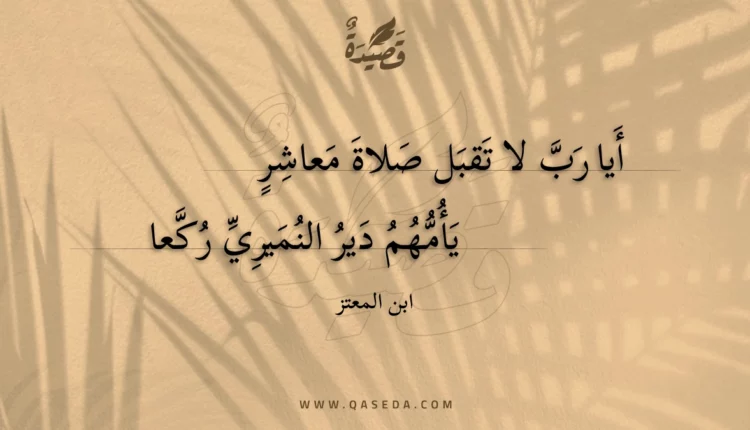 قَصِيْدَةٌ
أَيا رَبَّ لا تَقبَل صَلاةَ مَعاشِرٍ
يَأُمُّهُمُ دَيرُ النُمَيرِيِّ رُكَّعا
ابن المعتز
WWW.QASEDA.COM